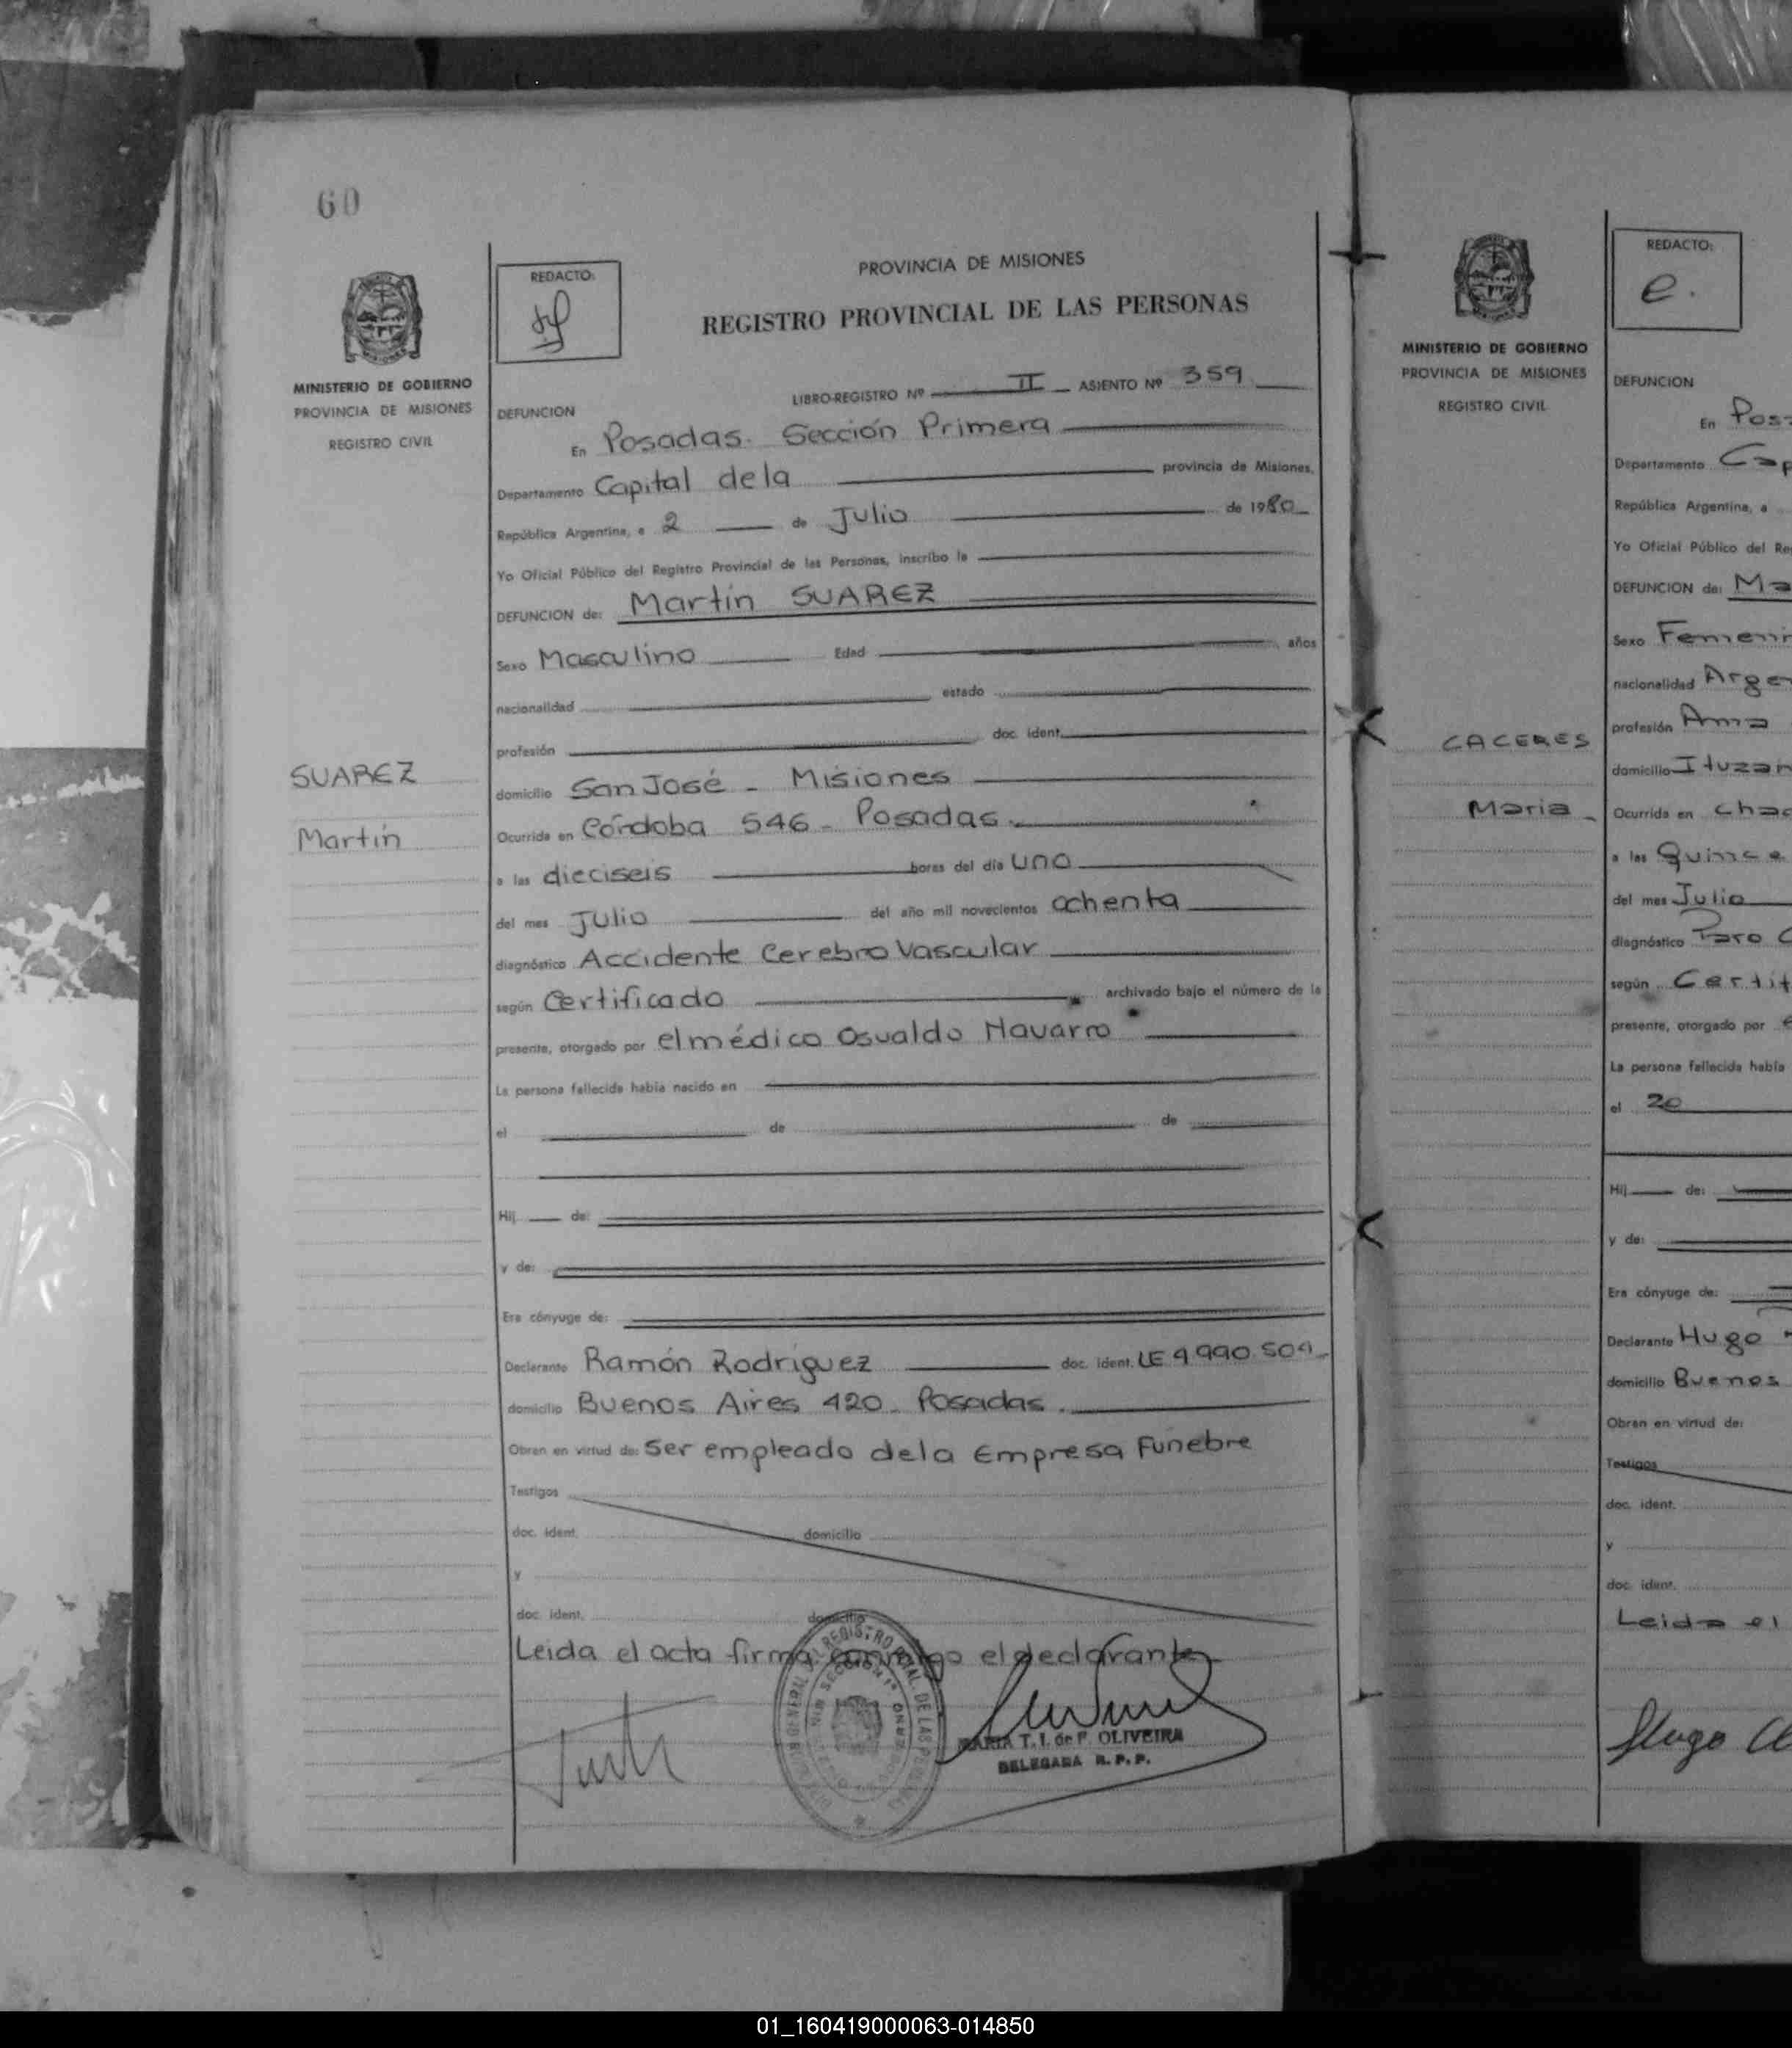 60
REDACTO:
PROVINCIA DE MISIONES
REGISTRO PROVINCIAL DE LAS PERSONAS
MINISTERIO DE GOBIERNO
PROVINCIA DE MISIONES
REGISTRO CIVIL
LIBRO-REGISTRO Nº II ASIENTO Nº 359
DEFUNCION
En Posadas. Sección Primera
Departamento Capital dela provincia de Misiones,
República Argentina, a 2 de Julio de 1980
Yo Oficial Público del Registro Provincial de las Personas, inscribo la
DEFUNCION de: Martín SUAREZ
Sexo Masculino Edad años
nacionalidad estado
profesión doc. ident.
SUAREZ
Martín
domicilio San José - Misiones
Ocurrida en Córdoba 546 - Posadas.
a las dieciseis horas del día uno
del mes Julio del año mil novecientos ochenta
diagnóstico Accidente Cerebro Vascular
según Certificado archivado bajo el número de la
presente, otorgado por el médico Osvaldo Navarro
La persona fallecida había nacido en
el de de
Hij de:
y de:
Era cónyuge de:
Declarante Ramón Rodríguez doc. ident. LE 9.990.509
domicilio Buenos Aires 420 - Posadas.
Obran en virtud de: Ser empleado dela Empresa Fúnebre
Testigos
doc. ident. domicilio
y
doc. ident. domicilio
Leida el acta firma conmigo el declarante
MARIA T. I. de F. OLIVEIRA
DELEGADA R. P. P.
REDACTO:
e.
MINISTERIO DE GOBIERNO
PROVINCIA DE MISIONES
REGISTRO CIVIL
DEFUNCION
En Pos
Departamento Cap
República Argentina, a
Yo Oficial Público del Re
DEFUNCION de: Ma
Sexo Femenin
nacionalidad Arge
profesión Ama
CACERES
Maria
domicilio Ituzain
Ocurrida en Chac
a las Quince
del mes Julio
diagnóstico Paro C
según Certif
presente, otorgado por e
La persona fallecida había
el 20
Hij de:
y de:
Era cónyuge de:
Declarante Hugo
domicilio Buenos
Obran en virtud de:
Testigos
doc. ident.
y
doc. ident.
Leida el
Hugo
01_160419000063-014850